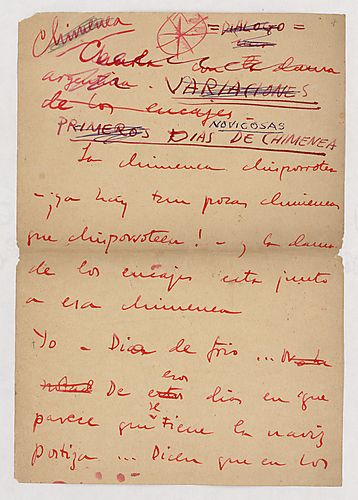 Chimenea
= DIALOGO =
Charla con la dama
argentina. VARIACIONES
de los encajes
NOVIOSAS
PRIMEROS DIAS DE CHIMENEA
La chimenea chisporrotea
- ¡ya hay tan pocas chimeneas
que chisporrotean! - y la dama
de los encajes esta junto
a esa chimenea
Yo - Dias de frio ...
De esos dias en que
parece que se tiene la nariz
postiza ... Dicen que en los